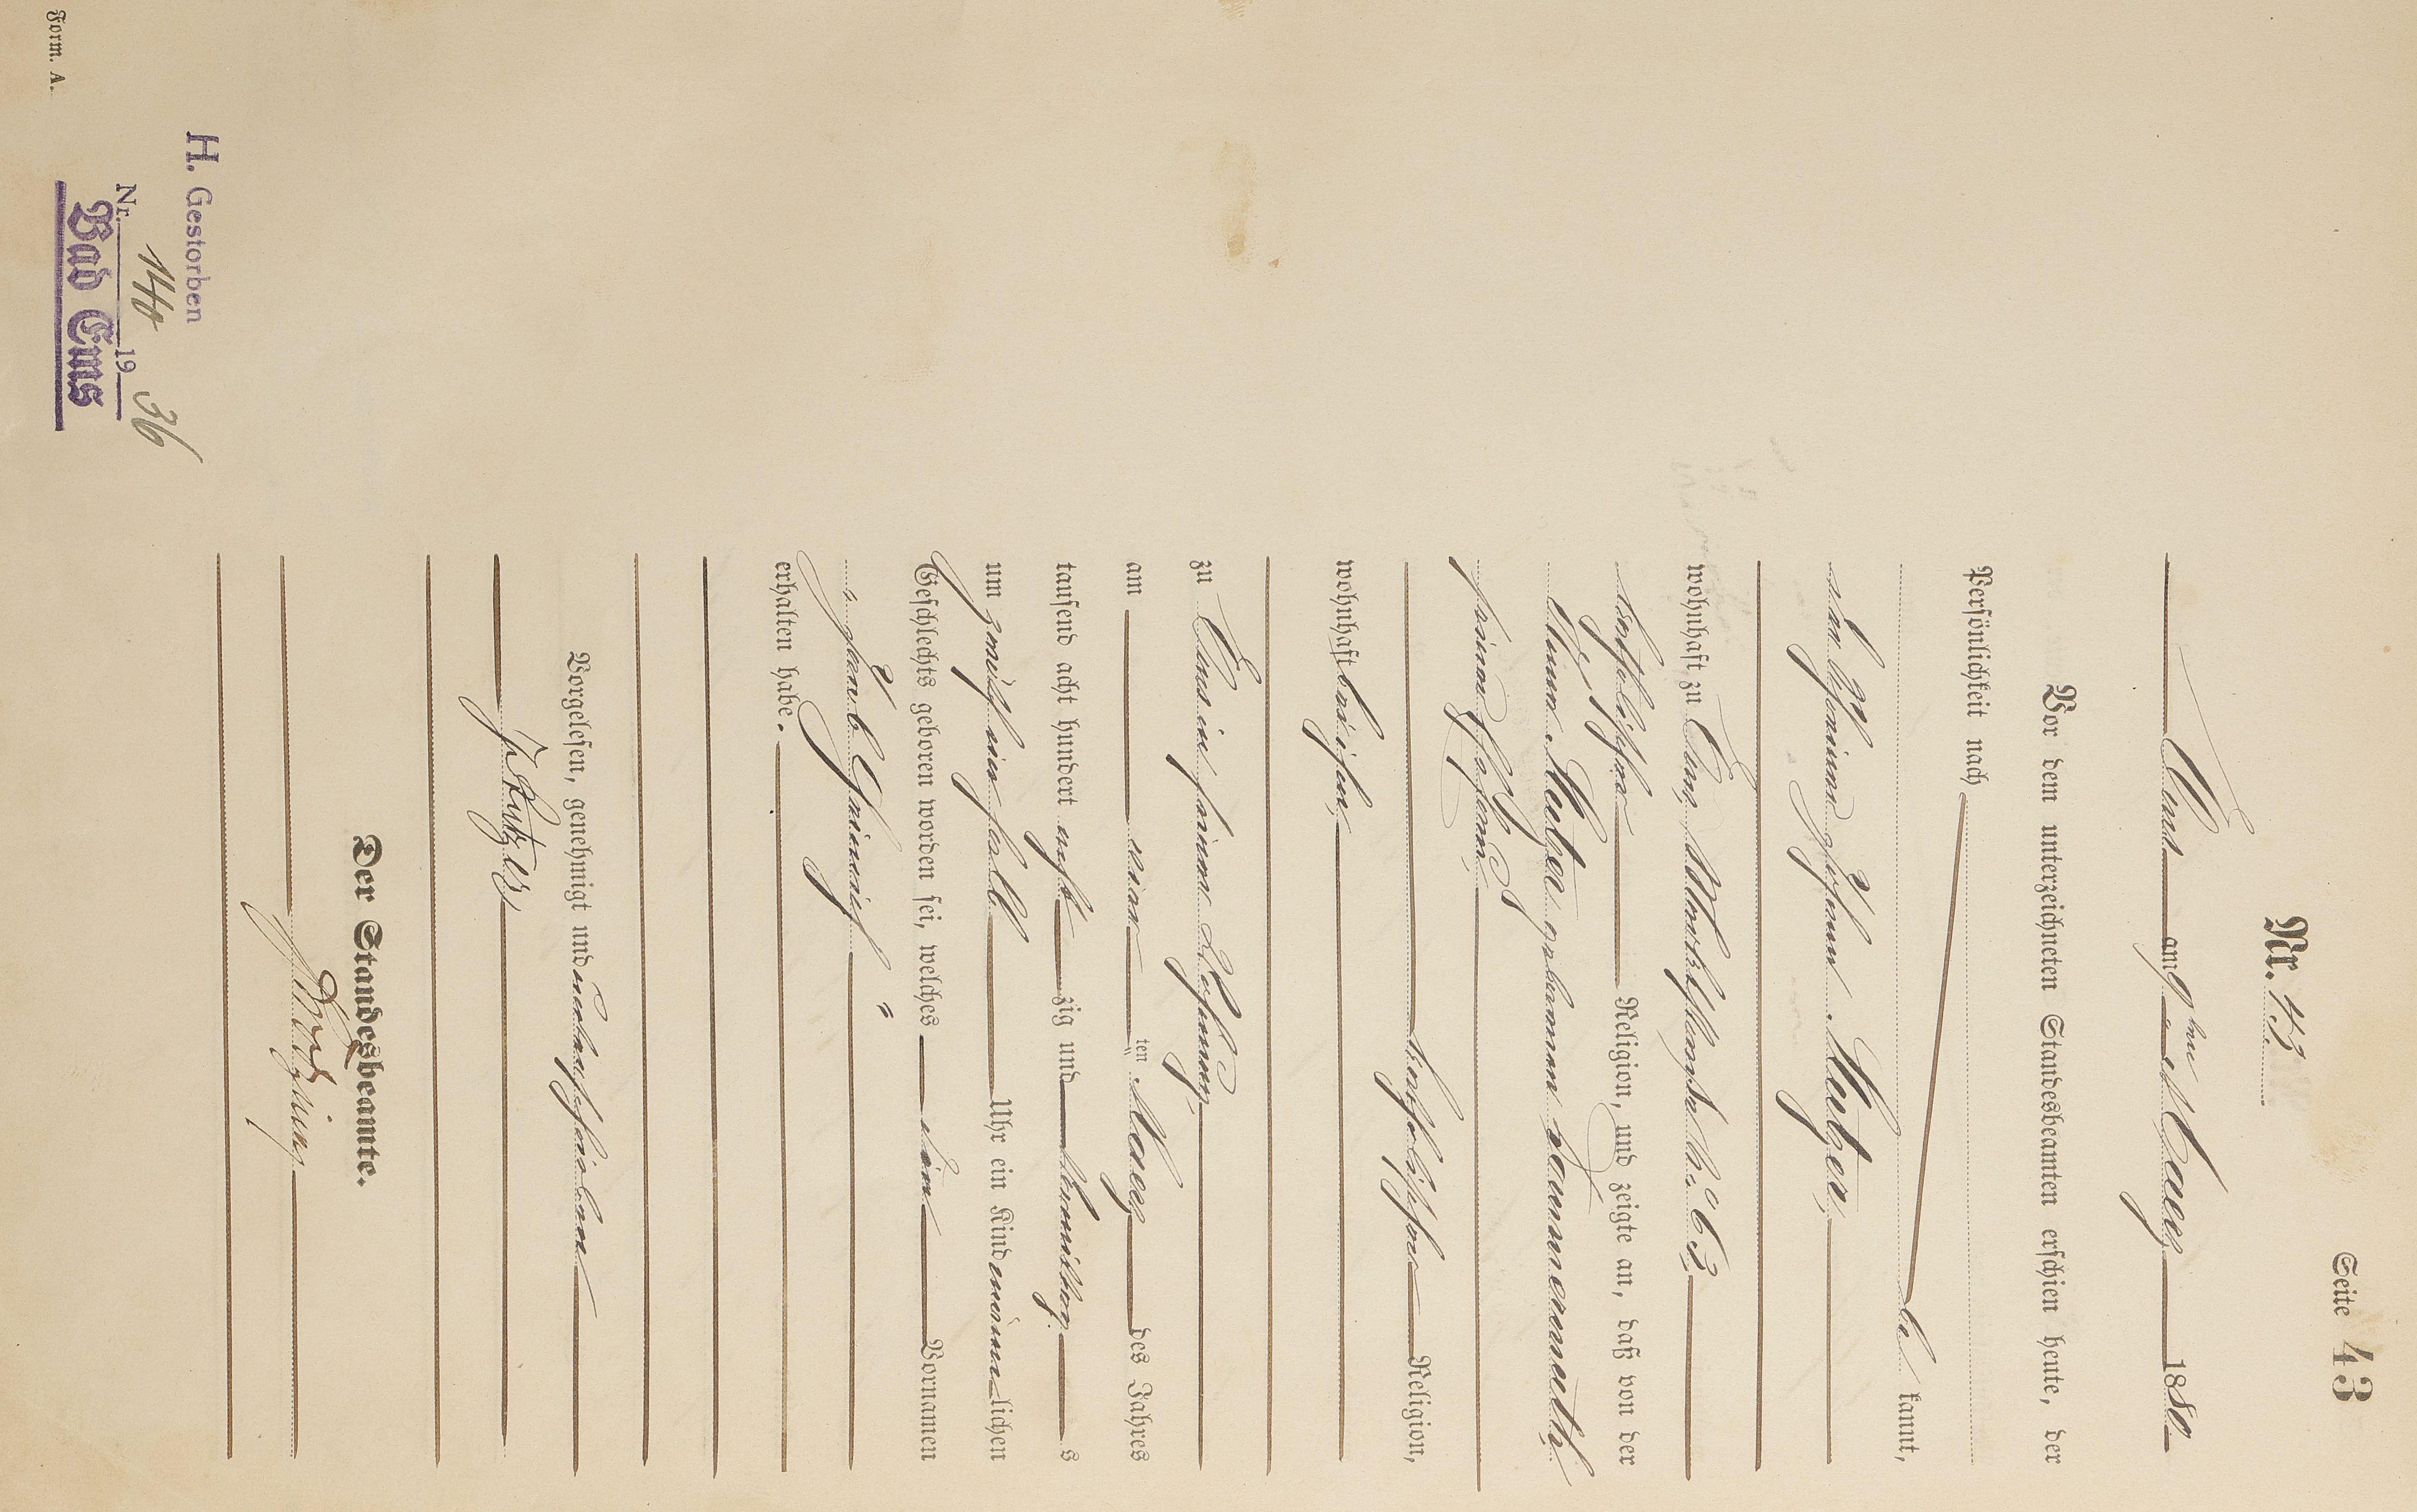 Seite 43
Nr. 43.
Ems am 9ten März 1880
Vor dem unterzeichneten Standesbeamten erschien heute, der
Persönlichkeit nach
be kannt,
Johann Metzger,
wohnhaft zu Ems, Marktstraße No. 63,
katholischer Religion, und zeigte an, daß von der
Metzger geborenen
seiner Ehefrau,
katholischer Religion,
wohnhaft bei ihm,
zu Ems in seiner Wohnung,
am ten März des Jahres
tausend acht hundert acht zig und s
um halb Uhr ein Kind männ lichen
Geschlechts geboren worden sei, welches Vornamen
„Jakob Heinrich"
erhalten habe.
Vorgelesen, genehmigt und unterschrieben
Der Standesbeamte.
H. Gestorben
Nr. 144 19 36
Bad Ems
Form. A.